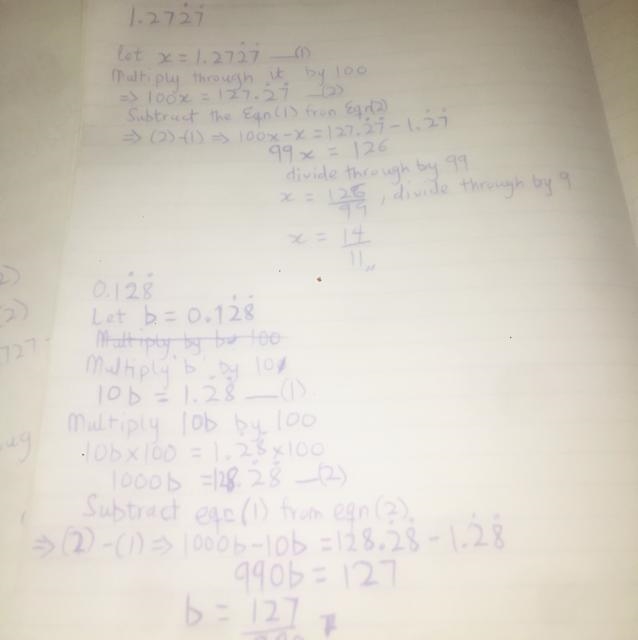 1.272̇7̇
Let x = 1.272̇7̇ —(1)
Multiply through it by 100
⇒ 100x = 127.2̇7̇ —(2)
Subtract the Eqn(1) from Eqn(2)
⇒ (2)-(1) ⇒ 100x-x = 127.2̇7̇ - 1.2̇7̇
99x = 126
divide through by 99
x = 126/99, divide through by 9
x = 14/11,,
0.12̇8̇
Let b = 0.12̇8̇
Multiply b by 10
10b = 1.2̇8̇ —(1)
Multiply 10b by 100
10b×100 = 1.2̇8̇×100
1000b = 128.2̇8̇ —(2)
Subtract eqn(1) from eqn(2)
⇒ (2)-(1) ⇒ 1000b-10b = 128.2̇8̇ - 1.2̇8̇
990b = 127
b = 127/990